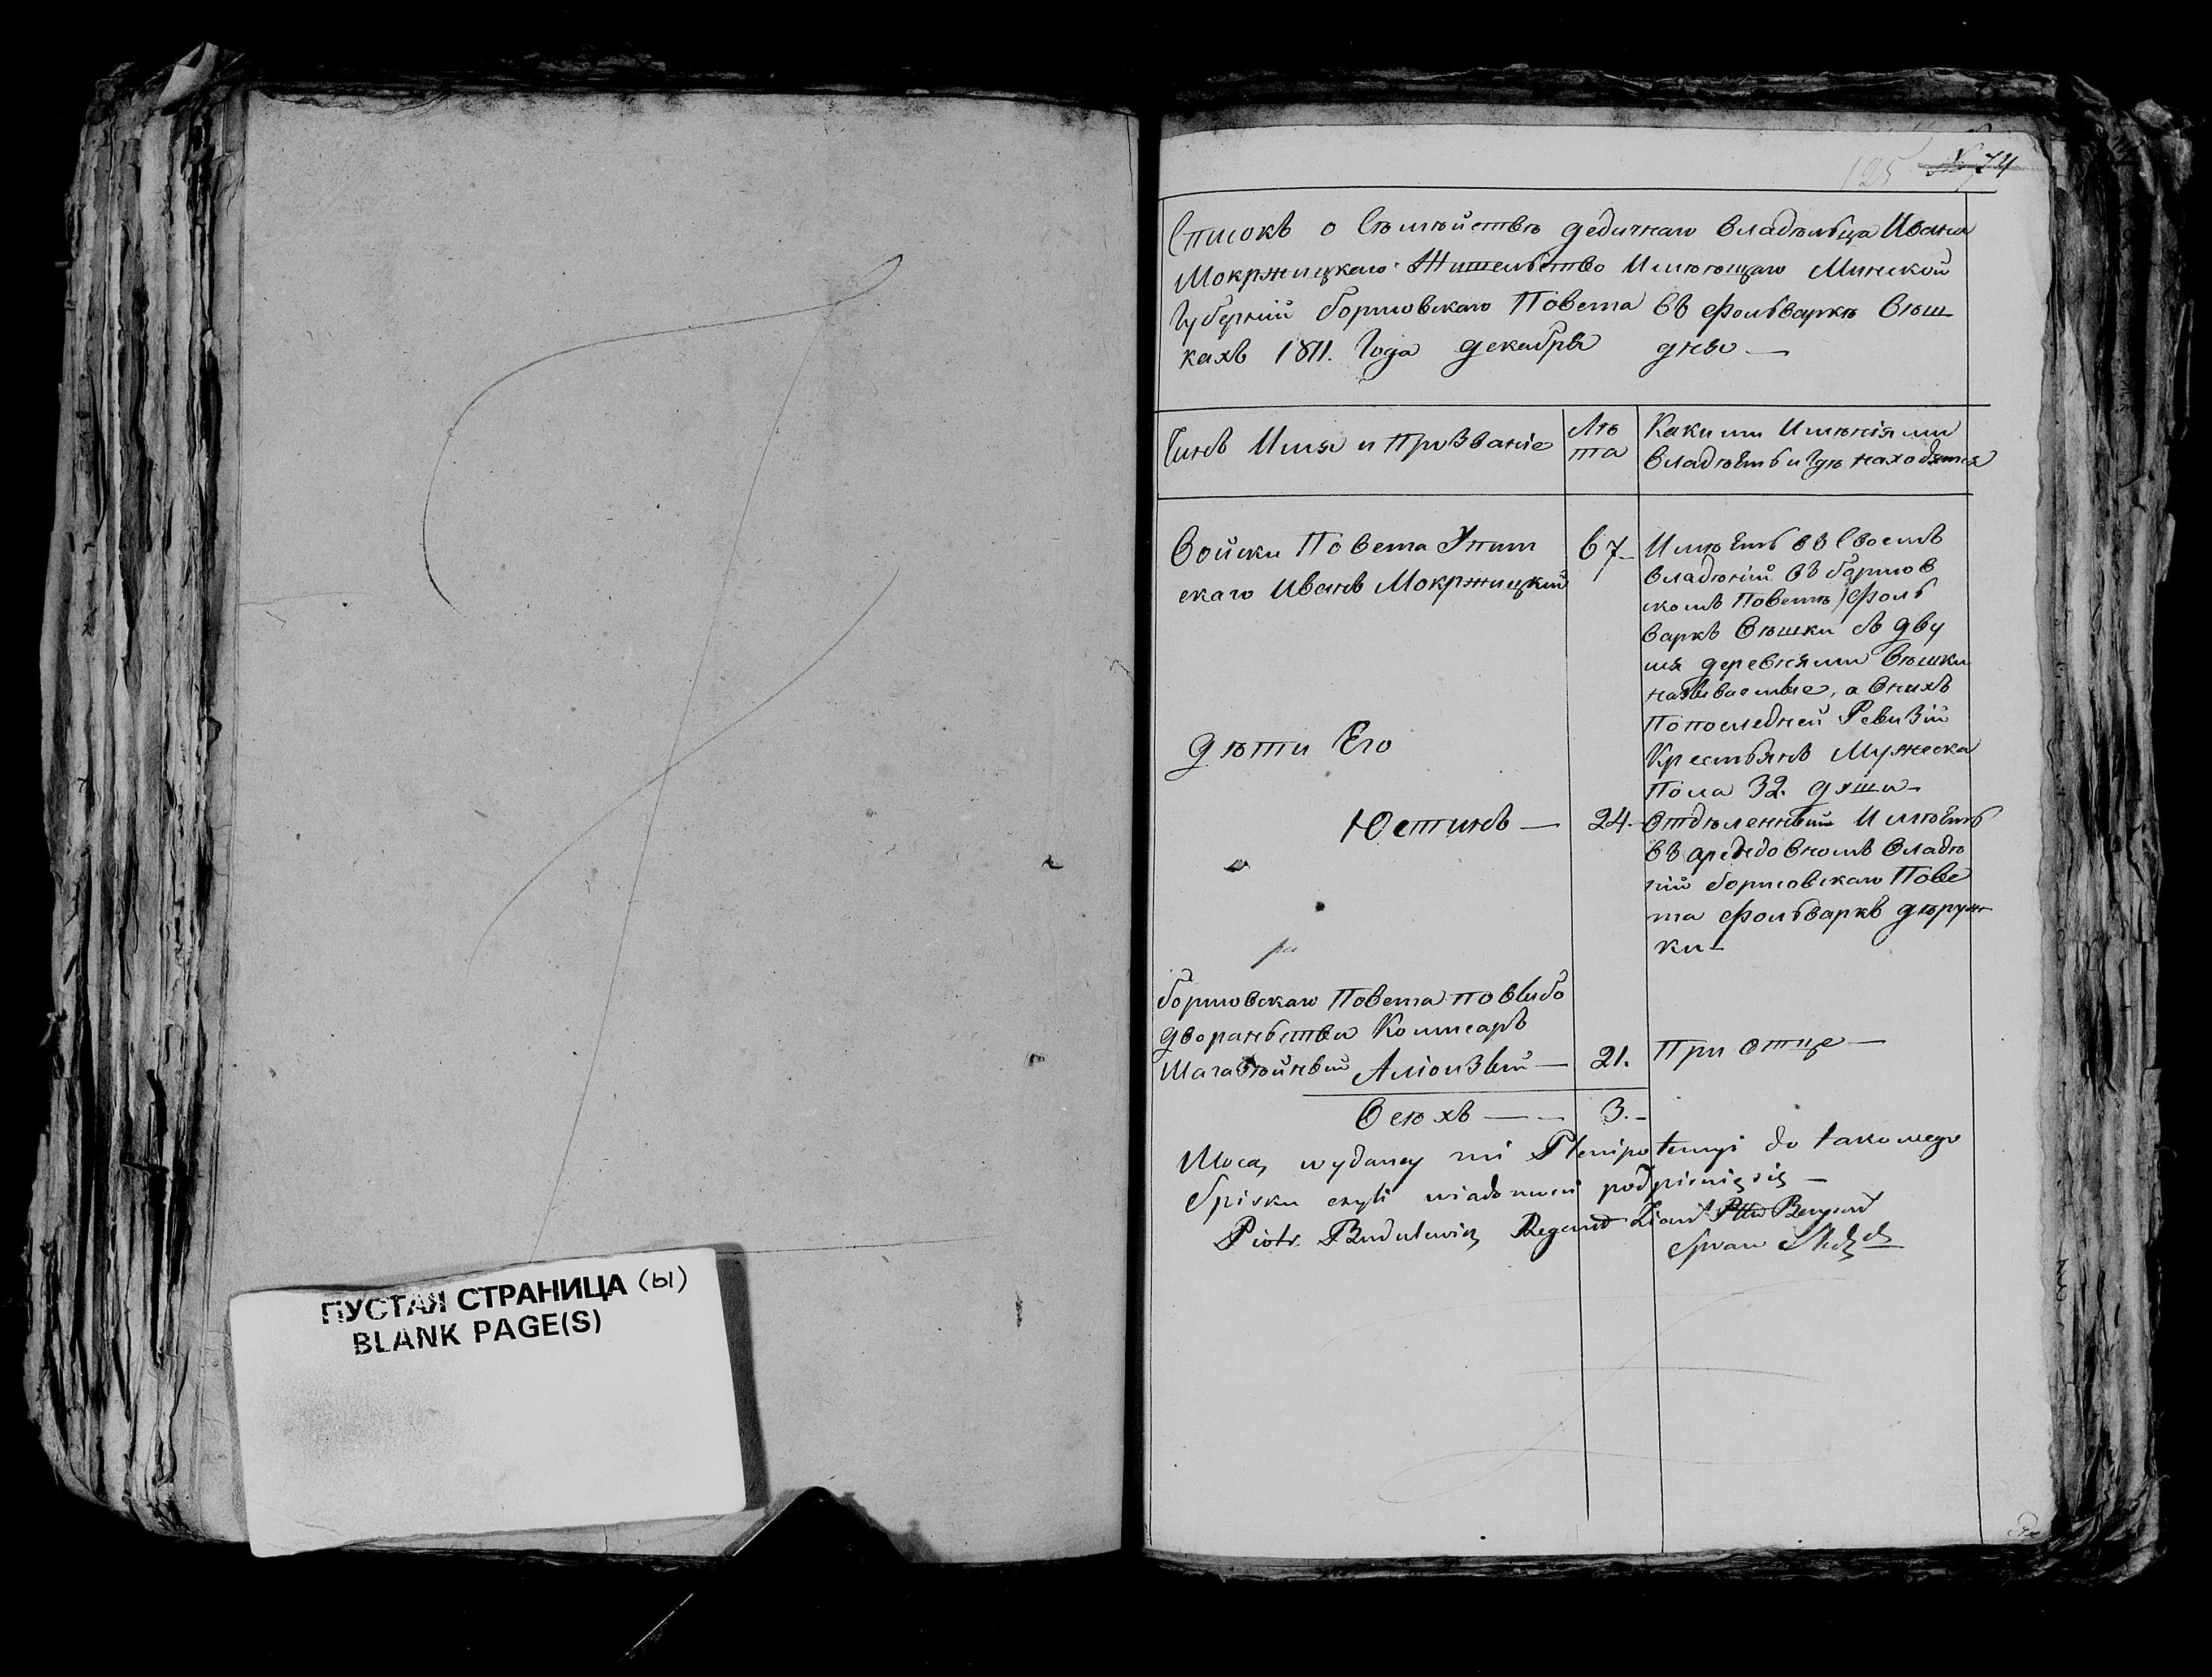 ПУСТАЯ СТРАНИЦА (ы)
BLANK PAGE(S)
125 74
Списокъ о Сѣмѣйствѣ дедичнаго владѣльца Ивана
Мокржицкаго Жительство Имѣющаго Минской
Губерній борисовскаго Повета въ фольваркѣ Вѣш
кахъ 1811. Года декабря дня
Чинъ Имя и Призваніе
Лѣ
та
Какими Имѣніями
владѣетъ и Где находятся
Войски Повета Упит
скаго Иванъ Мокржицкий
67
Имѣетъ въ Своемъ
владѣній въ борисов
скомъ Поветѣ фоль
варкъ Вѣшки съ дву
мя деревнями Вѣшки
называемые, а Внихъ
По последней Ревизій
Крестьянъ Мужеска
Пола 32. души
дѣти Его
Юстинъ
24.
Отдѣленный Имѣетъ
въ арендовномъ владѣ
ній борисовскаго Пове
та фольваркъ дѣруж
ки
борисовскаго Повета По выбо
ра
двораньства Комисаръ
Магазѣйный Алюизый
21.
При Отце
Всѣхъ
3.
Mocą wydaney mi Plenipotencyi do takowego
Spisku czyli wiadomosci podpisuię się
Piotr Regent
Spraw